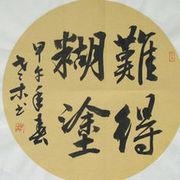 難得
糊塗
甲午年春
老木书